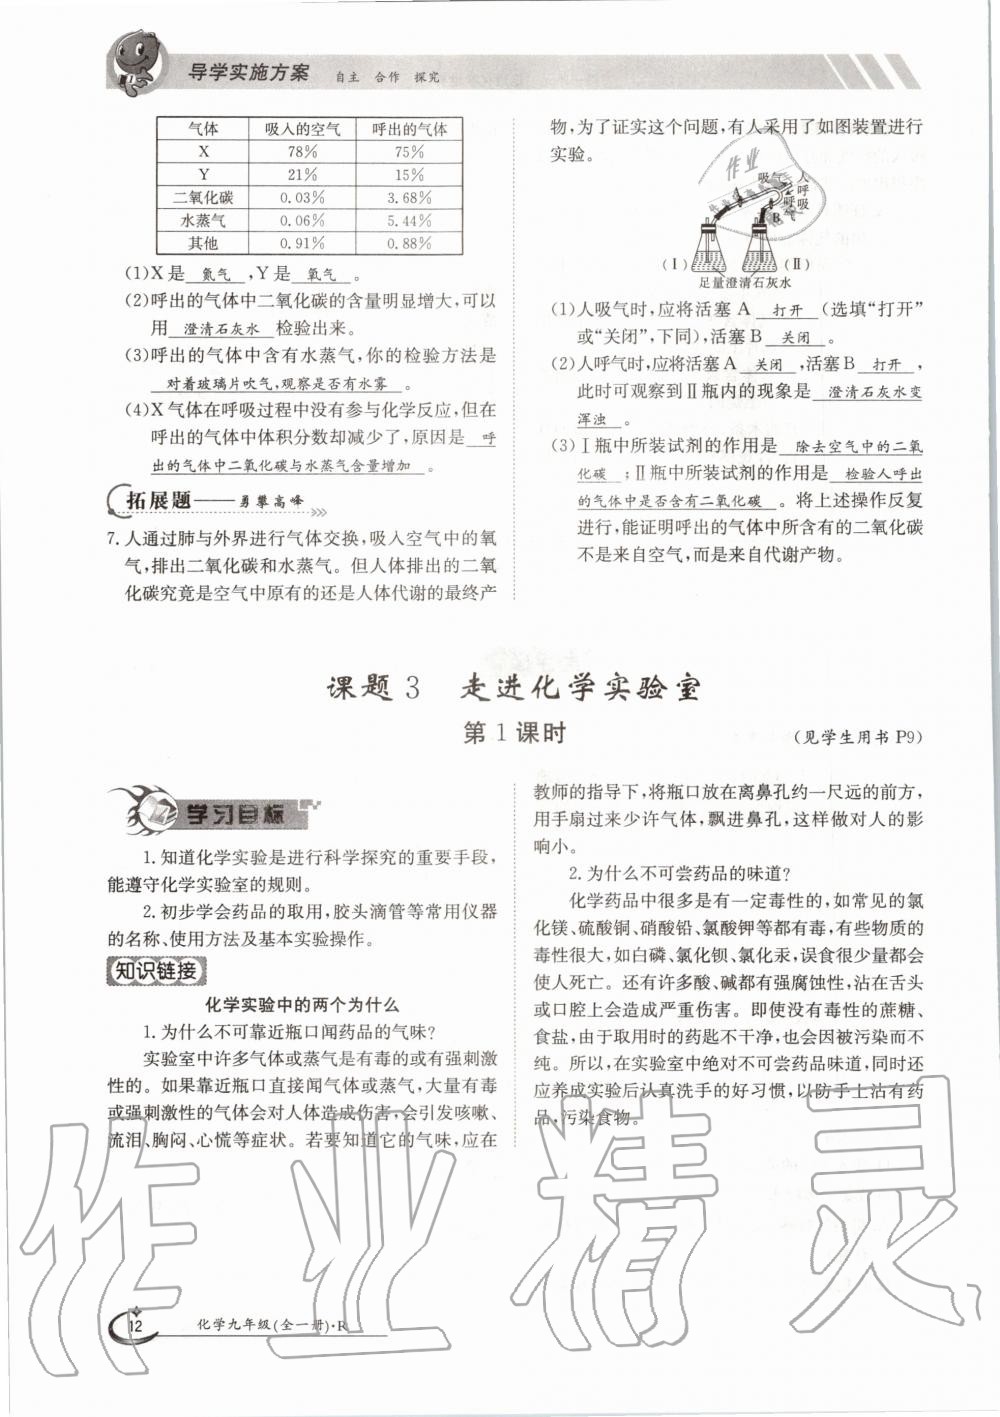 导学实施方案 自主 合作 探究
气体 吸入的空气 呼出的气体
X 78% 75%
Y 21% 15%
二氧化碳 0.03% 3.68%
水蒸气 0.06% 5.44%
其他 0.91% 0.88%
(1)X是 氮气 ,Y是 氧气 。
(2)呼出的气体中二氧化碳的含量明显增大,可以
用 澄清石灰水 检验出来。
(3)呼出的气体中含有水蒸气,你的检验方法是
对着玻璃片吹气,观察是否有水雾 。
(4)X气体在呼吸过程中没有参与化学反应,但在
呼出的气体中体积分数却减少了,原因是 呼
出的气体中二氧化碳与水蒸气含量增加 。
拓展题——勇攀高峰
7.人通过肺与外界进行气体交换,吸入空气中的氧
气,排出二氧化碳和水蒸气。但人体排出的二氧
化碳究竟是空气中原有的还是人体代谢的最终产
物,为了证实这个问题,有人采用了如图装置进行
实验。
作业
吸气 人
呼吸
呼气
B
(Ⅰ) (Ⅱ)
足量澄清石灰水
(1)人吸气时,应将活塞A 打开 (选填“打开”
或“关闭”,下同),活塞B 关闭 。
(2)人呼气时,应将活塞A 关闭 ,活塞B 打开 ,
此时可观察到Ⅱ瓶内的现象是 澄清石灰水变
浑浊 。
(3)Ⅰ瓶中所装试剂的作用是 除去空气中的二氧
化碳 ;Ⅱ瓶中所装试剂的作用是 检验人呼出
的气体中是否含有二氧化碳 。将上述操作反复
进行,能证明呼出的气体中所含有的二氧化碳
不是来自空气,而是来自代谢产物。
课题3 走进化学实验室
第1课时
(见学生用书P9)
学习目标
1.知道化学实验是进行科学探究的重要手段,
能遵守化学实验室的规则。
2.初步学会药品的取用,胶头滴管等常用仪器
的名称、使用方法及基本实验操作。
知识链接
化学实验中的两个为什么
1.为什么不可靠近瓶口闻药品的气味?
实验室中许多气体或蒸气是有毒的或有强刺激
性的。如果靠近瓶口直接闻气体或蒸气,大量有毒
或强刺激性的气体会对人体造成伤害,会引发咳嗽、
流泪、胸闷、心慌等症状。若要知道它的气味,应在
教师的指导下,将瓶口放在离鼻孔约一尺远的前方,
用手扇过来少许气体,飘进鼻孔,这样做对人的影
响小。
2.为什么不可尝药品的味道?
化学药品中很多是有一定毒性的,如常见的氯
化镁、硫酸铜、硝酸铅、氯酸钾等都有毒,有些物质的
毒性很大,如白磷、氯化钡、氯化汞,误食很少量都会
使人死亡。还有许多酸、碱都有强腐蚀性,沾在舌头
或口腔上会造成严重伤害。即使没有毒性的蔗糖、
食盐,由于取用时的药匙不干净,也会因被污染而不
纯。所以,在实验室中绝对不可尝药品味道,同时还
应养成实验后认真洗手的好习惯,以防手上沾有药
品,污染食物。
作业精灵
12 化学九年级(全一册)·R